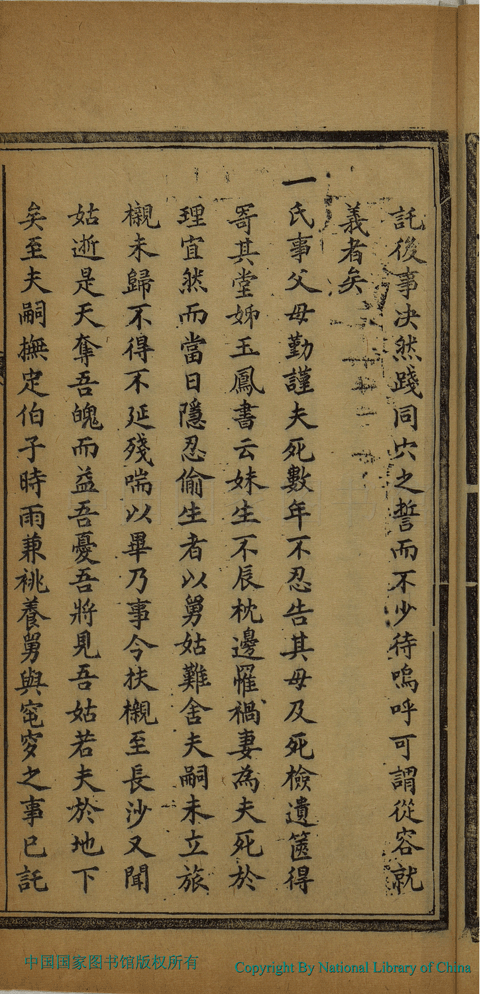 託後事决然踐同穴之誓而不少待嗚呼可謂從容就
義者矣
一氏事父母勤謹夫死數年不忍告其母及死檢遺篋得
寄其堂姊玉鳳書云妹生不辰枕邊罹禍妻為夫死於
理宜然而當日隱忍偷生者以舅姑難舍夫嗣未立旅
櫬未歸不得不延殘喘以畢乃事今扶櫬至長沙又聞
姑逝是天奪吾魄而益吾憂吾將見吾姑若夫於地下
矣至夫嗣撫定伯子時雨兼祧養舅與窀穸之事已託
中国国家图书馆版权所有
Copyright By National Library of China